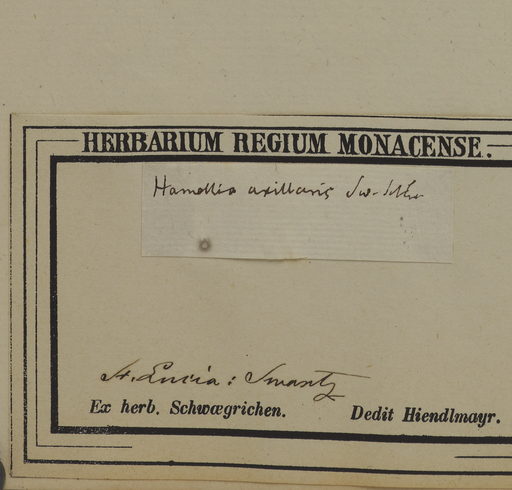 HERBARIUM REGIUM MONACENSE.
Hamellia axillaris Sw.
St. Lucia: Swartz
Ex herb. Schwægrichen. Dedit Hiendlmayr.